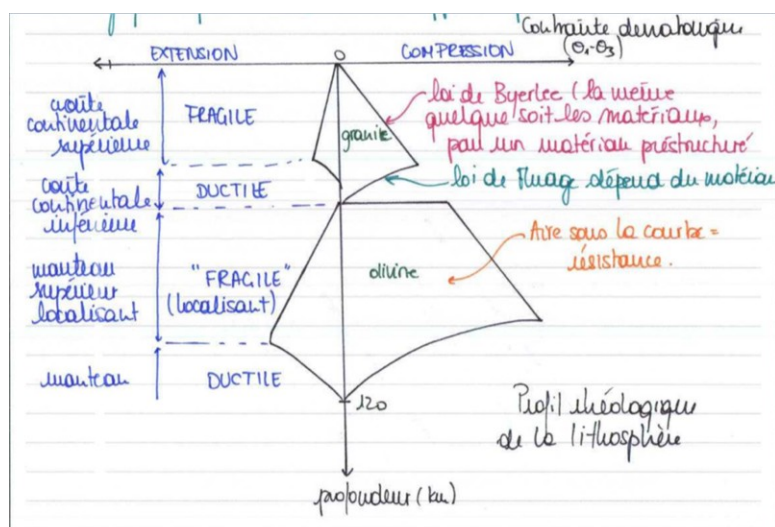 Contrainte démantologique
(σ₁-σ₃)
EXTENSION
0
COMPRESSION
croûte
continentale
supérieure
FRAGILE
granite
loi de Byerlee (la même
quelque soit les matériaux,
pour un matériau préstructuré
croûte
continentale
inférieure
DUCTILE
loi de fluage dépend du matériau
manteau
supérieur
localisant
"FRAGILE"
(localisant)
olivine
Aire sous la courbe =
résistance.
manteau
DUCTILE
120
Profil rhéologique
de la lithosphère
profondeur (km)